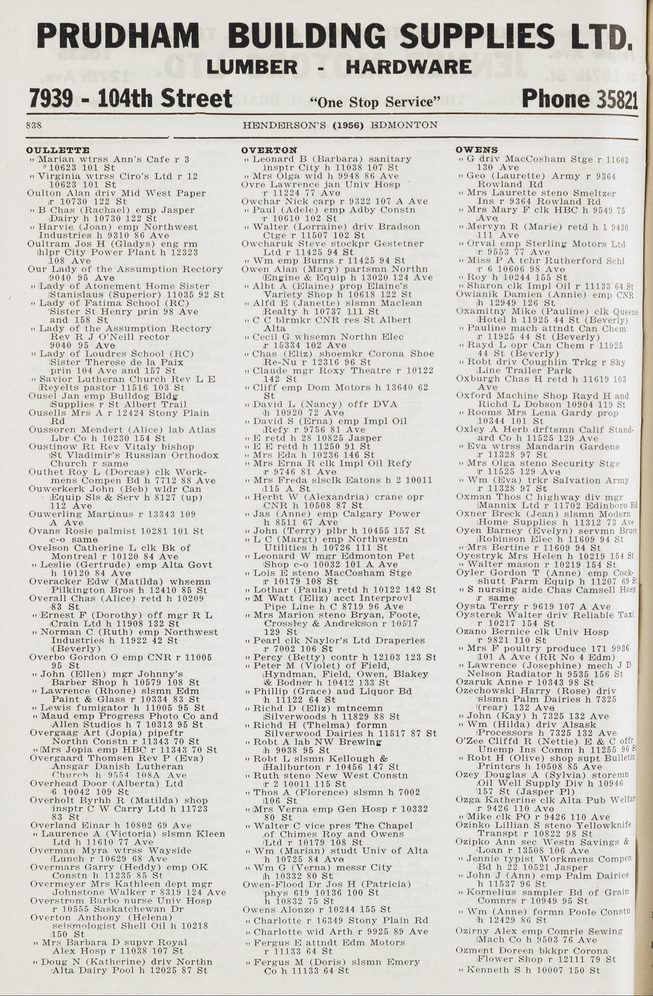 PRUDHAM BUILDING SUPPLIES LTD.
LUMBER - HARDWARE
7939 - 104th Street "One Stop Service" Phone 35821
838 HENDERSON'S (1956) EDMONTON
OULLETTE
" Marian wtrss Ann's Cafe r 3
10623 101 St
" Virginia wtrss Ciro's Ltd r 12
10623 101 St
Oulton Alan driv Mid West Paper
r 10730 122 St
" B Chas (Rachael) emp Jasper
Dairy h 10730 122 St
" Harvie (Joan) emp Northwest
Industries h 9310 86 Ave
Oultram Jos H (Gladys) eng rm
hlpr City Power Plant h 12323
108 Ave
Our Lady of the Assumption Rectory
9040 95 Ave
" Lady of Atonement Home Sister
Stanislaus (Superior) 11035 92 St
" Lady of Fatima School (RC)
Sister St Henry prin 98 Ave
and 158 St
" Lady of the Assumption Rectory
Rev R J O'Neill rector
9040 95 Ave
" Lady of Loudres School (RC)
Sister Therese de la Paix
prin 104 Ave and 157 St
" Savior Lutheran Church Rev L E
Reyelts pastor 11516 103 St
Ousel Jan emp Bulldog Bldg
Supplies r St Albert Trail
Ousells Mrs A r 12424 Stony Plain
Rd
Oussoren Mendert (Alice) lab Atlas
Lbr Co h 10230 154 St
Oustinow Rt Rev Vitaly bishop
St Vladimir's Russian Orthodox
Church r same
Outhet Roy L (Dorcas) clk Work-
mens Compen Bd h 7712 88 Ave
Ouwerkerk John (Beb) wldr Can
Equip Sls & Serv h 8127 (up)
112 Ave
Ouwerling Martinus r 13343 109
A Ave
Ovans Rosie palmist 10281 101 St
c-o same
Ovelson Catherine L clk Bk of
Montreal r 10120 84 Ave
" Leslie (Gertrude) emp Alta Govt
h 10120 84 Ave
Overacker Edw (Matilda) whsemn
Pilkington Bros h 12410 85 St
Overall Chas (Alice) retd h 10209
83 St
" Ernest F (Dorothy) off mgr R L
Crain Ltd h 11908 132 St
" Norman C (Ruth) emp Northwest
Industries h 11922 42 St
(Beverly)
Overbo Gordon O emp CNR r 11005
95 St
" John (Ellen) mgr Johnny's
Barber Shop h 10579 108 St
" Lawrence (Rhone) slsmn Edm
Paint & Glass r 10334 83 St
" Lewis fumigator h 11005 95 St
" Maud emp Progress Photo Co and
Allen Studios h 7 10313 95 St
Overgaag Art (Jopia) pipeftr
Northn Constn r 11343 70 St
" Mrs Jopia emp HBC r 11343 70 St
Overgaard Thomsen Rev P (Eva)
Ansgar Danish Lutheran
Church h 9554 108A Ave
Overhead Door (Alberta) Ltd
6 10042 109 St
Overholt Byrhh R (Matilda) shop
insptr C W Carry Ltd h 11723
83 St
Overland Einar h 10802 69 Ave
" Laurence A (Victoria) slsmn Kleen
Ltd h 11610 77 Ave
Overman Myra wtrss Wayside
Lunch r 10629 68 Ave
Overmars Garry (Heddy) emp OK
Constn h 11235 85 St
Overmeyer Mrs Kathleen dept mgr
Johnstone Walker r 8319 124 Ave
Overstrom Barbo nurse Univ Hosp
r 10555 Saskatchewan Dr
Overton Anthony (Helena)
seismologist Shell Oil h 10218
150 St
" Mrs Barbara D supvr Royal
Alex Hosp r 11038 107 St
" Doug N (Katherine) driv Northn
Alta Dairy Pool h 12025 87 St
OVERTON
" Leonard B (Barbara) sanitary
insptr City h 11038 107 St
" Mrs Olga wid h 9948 86 Ave
Ovre Lawrence jan Univ Hosp
r 11224 77 Ave
Owchar Nick carp r 9322 107 A Ave
" Paul (Adele) emp Adby Constn
r 10610 102 St
" Walter (Lorraine) driv Bradson
Ctge r 11507 102 St
Owcharuk Steve stockpr Gestetner
Ltd r 11425 94 St
" Wm emp Burns r 11425 94 St
Owen Alan (Mary) partsmn Northn
Engine & Equip h 13020 124 Ave
" Albt A (Elaine) prop Elaine's
Variety Shop h 10618 122 St
" Alfd E (Janette) slsmn Maclean
Realty h 10737 111 St
" C C blrmkr CNR res St Albert
Alta
" Cecil G whsemn Northn Elec
r 15334 102 Ave
" Chas (Eliz) shoemkr Corona Shoe
Re-Nu r 12316 96 St
" Claude mgr Roxy Theatre r 10122
142 St
" Cliff emp Dom Motors h 13640 62
St
" David L (Nancy) offr DVA
h 10920 72 Ave
" David S (Erna) emp Impl Oil
Refy r 9756 81 Ave
" E retd h 28 10825 Jasper
" E E retd h 11250 91 St
" Mrs Eda h 10236 146 St
" Mrs Erna R clk Impl Oil Refy
r 9746 81 Ave
" Mrs Freda slsclk Eatons h 2 10011
115 A St
" Herbt W (Alexandria) crane opr
CNR h 10508 87 St
" Jas (Anne) emp Calgary Power
h 8511 67 Ave
" John (Terry) plbr h 10455 157 St
" L C (Margt) emp Northwestn
Utilities h 10726 111 St
" Leonard W mgr Edmonton Pet
Shop c-o 10032 101 A Ave
" Lois E steno MacCosham Stge
r 10179 108 St
" Lothar (Paula) retd h 10122 142 St
" M Watt (Eliz) acct Interprovl
Pipe Line h C 8719 96 Ave
" Mrs Marion steno Bryan, Foote,
Crossley & Andrekson r 10517
129 St
" Pearl clk Naylor's Ltd Draperies
r 7002 106 St
" Percy (Betty) contr h 12103 123 St
" Peter M (Violet) of Field,
Hyndman, Field, Owen, Blakey
& Bodner h 10412 133 St
" Phillip (Grace) aud Liquor Bd
h 11122 64 St
" Richd D (Eliz) mtncemn
Silverwoods h 11829 88 St
" Richd H (Thelma) formn
Silverwood Dairies h 11517 87 St
" Robt A lab NW Brewing
h 9038 95 St
" Robt L slsmn Kellough &
Haliburton r 10456 147 St
" Ruth steno New West Constn
r 2 10011 115 St
" Thos A (Florence) slsmn h 7002
106 St
" Mrs Verna emp Gen Hosp r 10332
80 St
" Walter C vice pres The Chapel
of Chimes Roy and Owens
Ltd r 10179 108 St
" Wm (Marian) studt Univ of Alta
h 10725 84 Ave
" Wm G (Verna) messr City
h 10332 80 St
Owen-Flood Dr Jos H (Patricia)
phys 619 10136 100 St
h 10832 75 St
Owens Alonzo r 10244 155 St
" Charlotte r 16349 Stony Plain Rd
" Charlotte wid Arth r 9925 89 Ave
" Fergus E attndt Edm Motors
r 11133 64 St
" Fergus M (Doris) slsmn Emery
Co h 11133 64 St
OWENS
" G driv MacCosham Stge r 11603
130 Ave
" Geo (Laurette) Army r 9364
Rowland Rd
" Mrs Laurette steno Smeltzer
Ins r 9364 Rowland Rd
" Mrs Mary F clk HBC h 9549 75
Ave
" Mervyn R (Marie) retd h 1 9430
111 Ave
" Orval emp Sterling Motors Ltd
r 9553 77 Ave
" Miss P A tchr Rutherford Schl
r 6 10606 98 Ave
" Roy h 10244 155 St
" Sharon clk Impl Oil r 11133 64 St
Owianik Damien (Annie) emp CNR
h 12949 126 St
Oxamitny Mike (Pauline) clk Queens
Hotel h 11925 44 St (Beverly)
" Pauline mach attndt Can Chem
r 11925 44 St (Beverly)
" Rayd L opr Can Chem r 11925
44 St (Beverly)
" Robt driv Coughlin Trkg r Sky
Line Trailer Park
Oxburgh Chas H retd h 11619 103
Ave
Oxford Machine Shop Rayd H and
Richd L Dobson 10904 119 St
" Rooms Mrs Lena Gardy prop
10344 101 St
Oxley A Herb drftsmn Calif Stand-
ard Co h 11525 129 Ave
" Eva wtrss Mandarin Gardens
r 11328 97 St
" Mrs Olga steno Security Stge
r 11525 129 Ave
" Wm (Eva) trkr Salvation Army
r 11328 97 St
Oxman Thos C highway div mgr
Mannix Ltd r 11702 Edinboro Rd
Oxner Breck (Jean) slsmn Modern
Home Supplies h 11312 73 Ave
Oyen Barney (Evelyn) servmn Bruce
Robinson Elec h 11609 94 St
" Mrs Bertine r 11609 94 St
Oyestryk Mrs Helen h 10219 154 St
" Walter mason r 10219 154 St
Oyler Gordon T (Anne) emp Cock-
shutt Farm Equip h 11207 69 St
" S nursing aide Chas Camsell Hosp
r same
Oysta Terry r 9619 107 A Ave
Oysterek Walter driv Reliable Taxi
r 10217 154 St
Ozano Bernice clk Univ Hosp
r 9821 110 St
" Mrs F poultry produce 171 9936
101 A Ave (RR No 4 Edm)
" Lawrence (Josephine) mech J D
Nelson Radiator h 9535 156 St
Ozaruk Anne r 10343 98 St
Ozechowski Harry (Rose) driv
slsmn Palm Dairies h 7325
(rear) 132 Ave
" John (Kay) h 7325 132 Ave
" Wm (Hilda) driv Alsask
Processors h 7325 132 Ave
O'Zee Cliffd R (Nettie) E & C offr
Unemp Ins Comm h 11255 96 St
" Robt H (Olive) shop supt Bulletin
Printers h 10508 85 Ave
Ozey Douglas A (Sylvia) storemn
Oil Well Supply Div h 10946
157 St (Jasper Pl)
Ozga Katherine clk Alta Pub Welfare
r 9426 110 Ave
" Mike clk PO r 9426 110 Ave
Ozinko Lillian S steno Yellowknife
Transpt r 10822 98 St
Ozipko Ann sec Westn Savings &
Loan r 13508 106 Ave
" Jennie typist Workmens Compen
Bd h 22 10521 Jasper
" John J (Ann) emp Palm Dairies
h 11537 96 St
" Kornelius sampler Bd of Grain
Comnrs r 10949 95 St
" Wm (Anne) formn Poole Constn
h 12429 86 St
Ozirny Alex emp Comrie Sewing
Mach Co h 9503 76 Ave
Ozment Doreen bkkpr Corona
Flower Shop r 12111 79 St
" Kenneth S h 10007 150 St